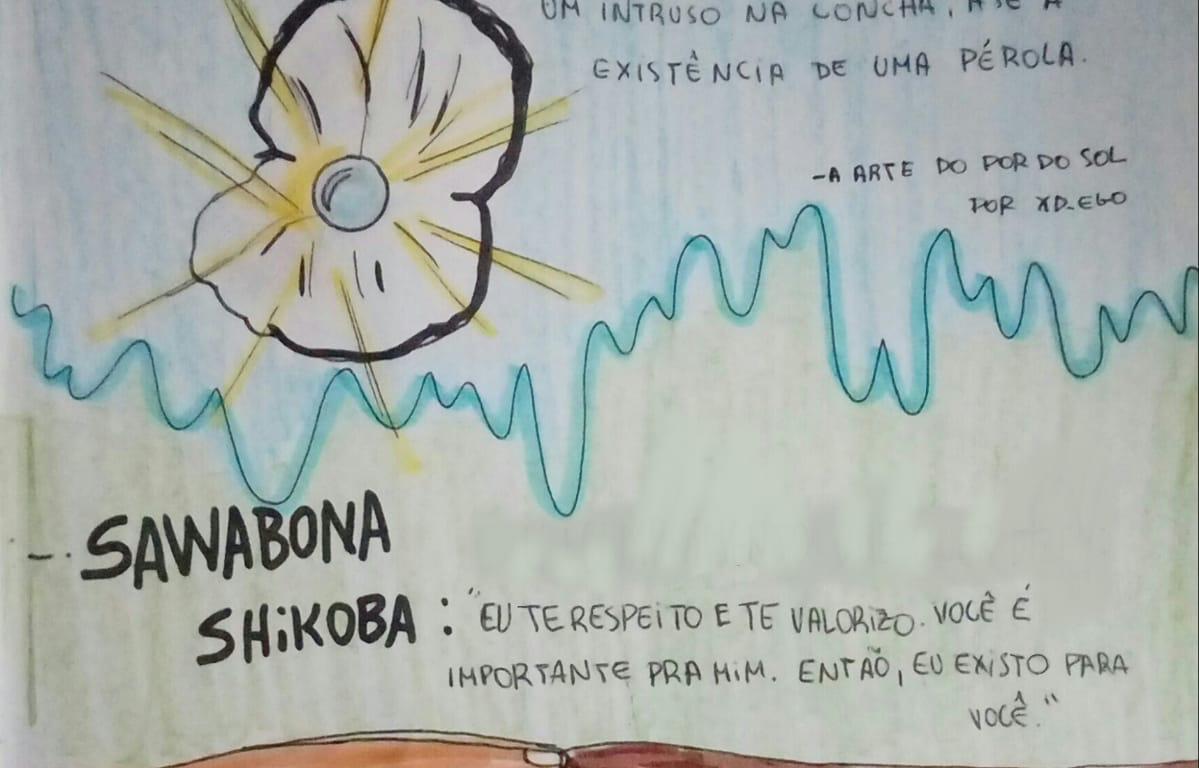 UM INTRUSO NA CONCHA,
EXISTÊNCIA DE UMA PÉROLA.
-A ARTE DO POR DO SOL
POR XD_EGO
- SAWABONA
SHiKOBA : "EU TE RESPEiTO E TE VALORIZO. VOCÊ É
IMPORTANTE PRA MiM. ENTÃO, EU EXiSTO PARA
VOCÊ."